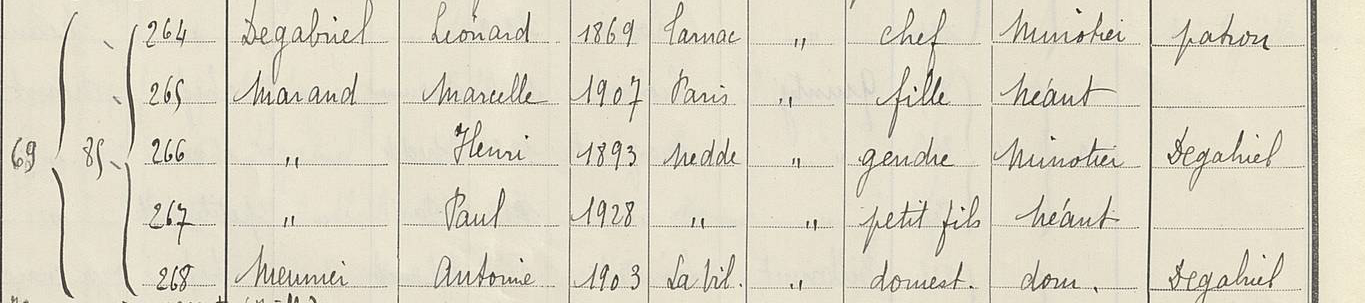 264 Degabriel Léonard 1869 Tarnac " chef Minotier patron
265 Marand Marcelle 1907 Paris " fille néant
69 85 266 " Henri 1893 Nedde " gendre Minotier Degabriel
267 " Paul 1928 " " petit fils néant
268 Meunier Antoine 1903 La Vil. " domest. dom. Degabriel